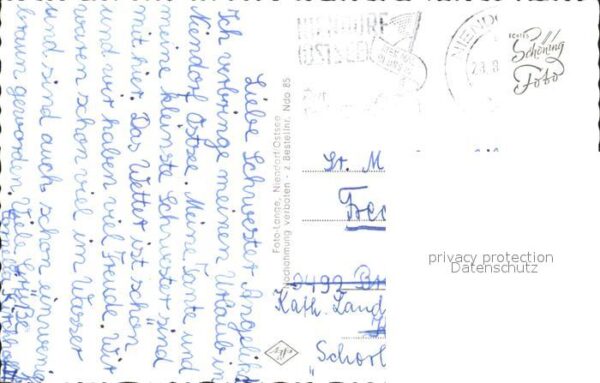 Liebe Schwester Angelika
Ich verbringe meinen Urlaub in
Niendorf Ostsee. Meine Tante und
meine kleinste Schwester sind
mit hier. Das Wetter ist schön
und wir haben viel Freude. Wir
waren schon viel im Wasser
und sind auch schon ein wenig
braun geworden. Viele Grüße
Foto-Lange, Niendorf/Ostsee
Nachahmung verboten - z. Bestellnr. Ndo 85
NIENDORF
OSTSEE
NIEND
ECHTES
Schöning
Foto
St. M
Frec
Kath. Land
"Schorl
privacy protection
Datenschutz